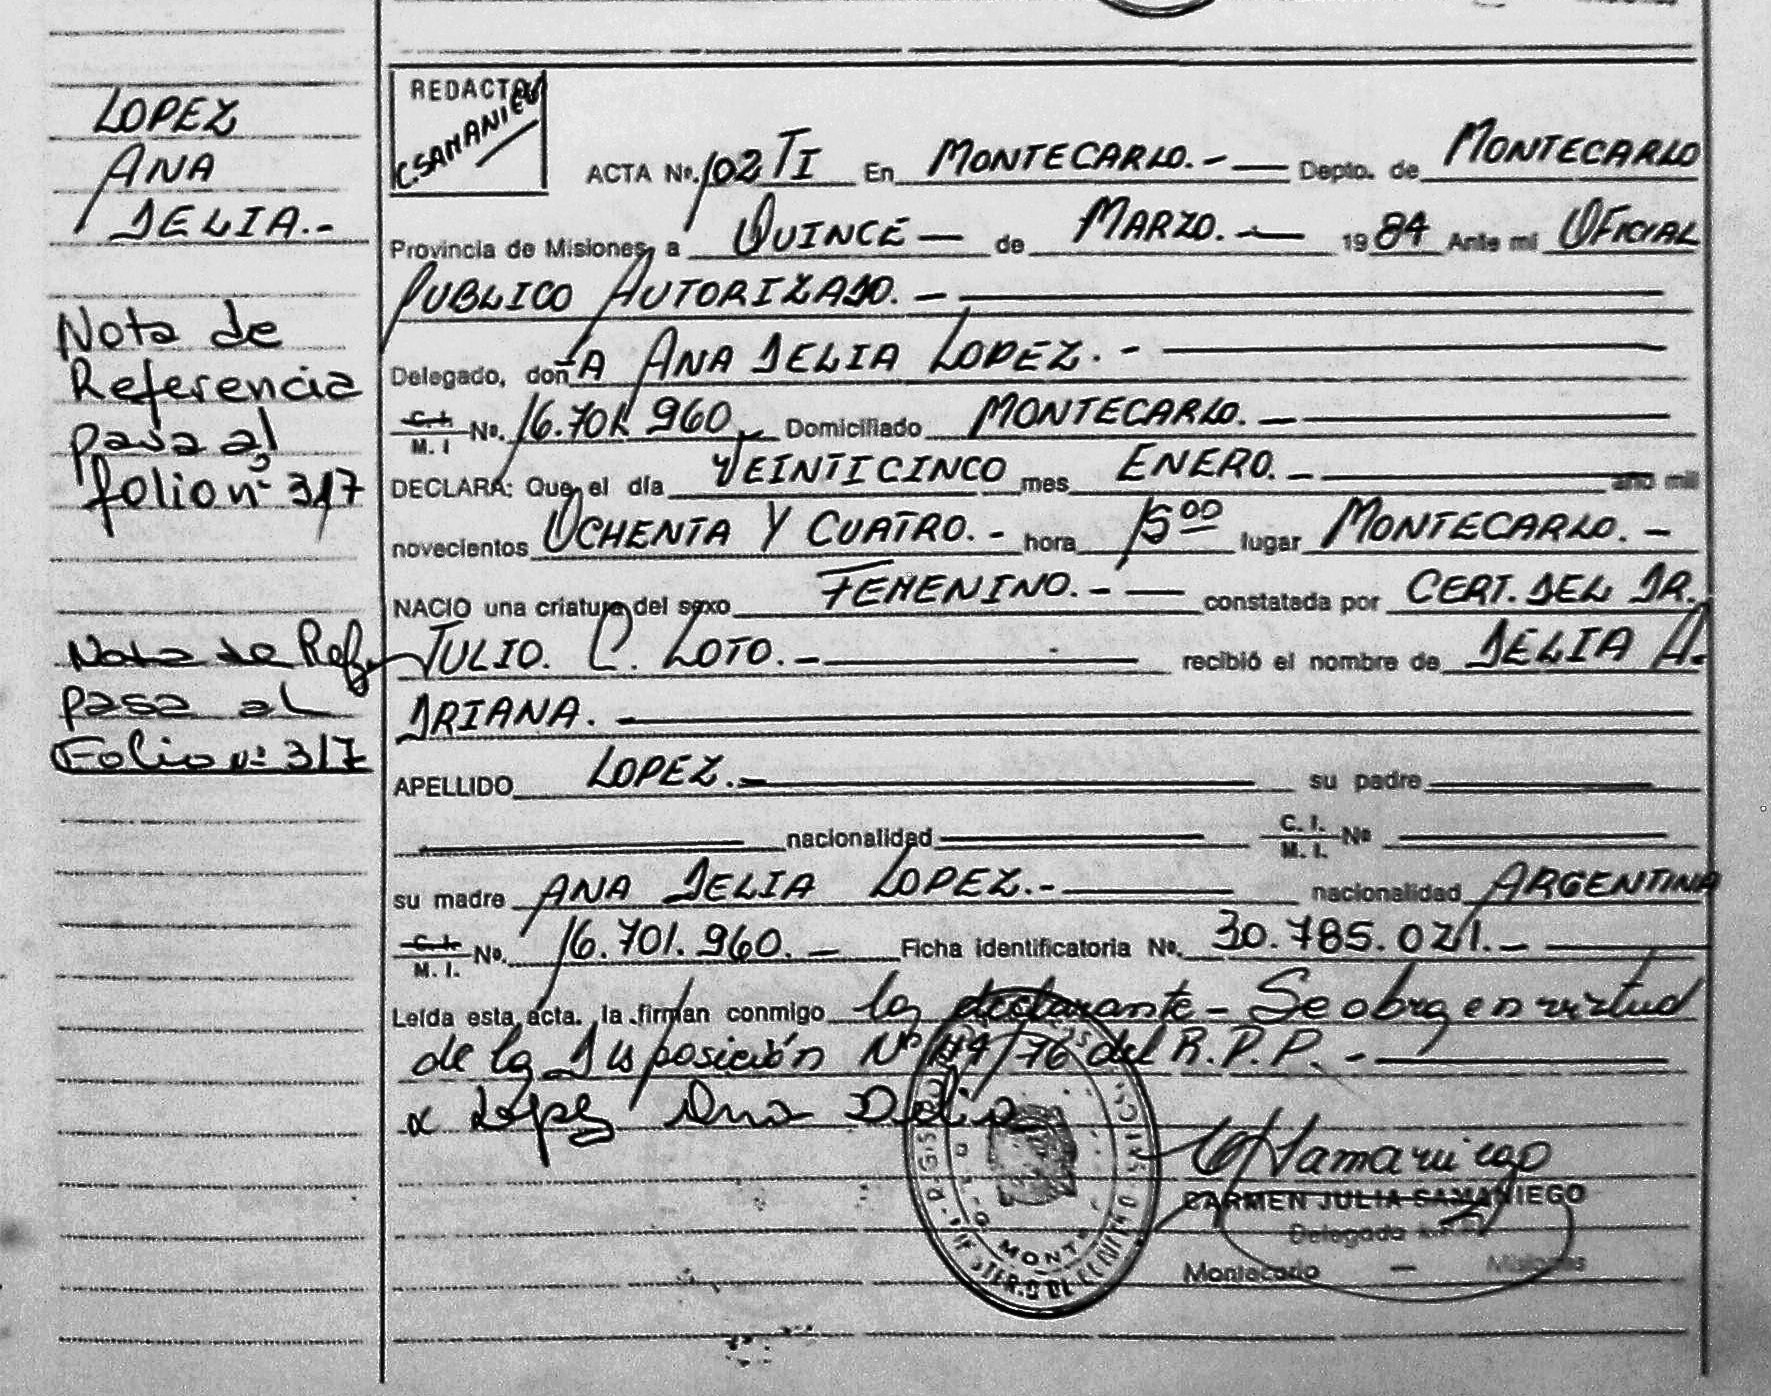 LOPEZ
ANA
DELIA.-
Nota de
Referencia
pasa al
folio nº 317
Nota de Ref.
pasa al
Folio nº 317
REDACTOR
C. SAMANIEGO
ACTA Nº. 102 TI En MONTECARLO.- Depto. de MONTECARLO
Provincia de Misiones, a QUINCE de MARZO.- 1984 Ante mi OFICIAL
PUBLICO AUTORIZADO.-
Delegado, don A ANA DELIA LOPEZ.-
C.I. M.I Nº. 16.701.960 Domiciliado MONTECARLO.-
DECLARA: Que el día VEINTICINCO mes ENERO.- año mil
novecientos OCHENTA Y CUATRO.- hora 15 00 lugar MONTECARLO.-
NACIO una criatura del sexo FEMENINO.- constatada por CERT. DEL DR.
JULIO. C. LOTO.- recibió el nombre de DELIA A.
DRIANA.-
APELLIDO LOPEZ.- su padre
nacionalidad C. I. M. I. Nº
su madre ANA DELIA LOPEZ.- nacionalidad ARGENTINA
C.I. M. I. Nº. 16.701.960.- Ficha identificatoria Nº. 30.785.021.-
Leída esta acta. la firman conmigo la declarante - Se obra en virtud
de la Disposición Nº /76 del R.P.P.-
x Lopez Ana Delia
CSamaniego
CARMEN JULIA SAMANIEGO
Delegada
Montecarlo - Misiones